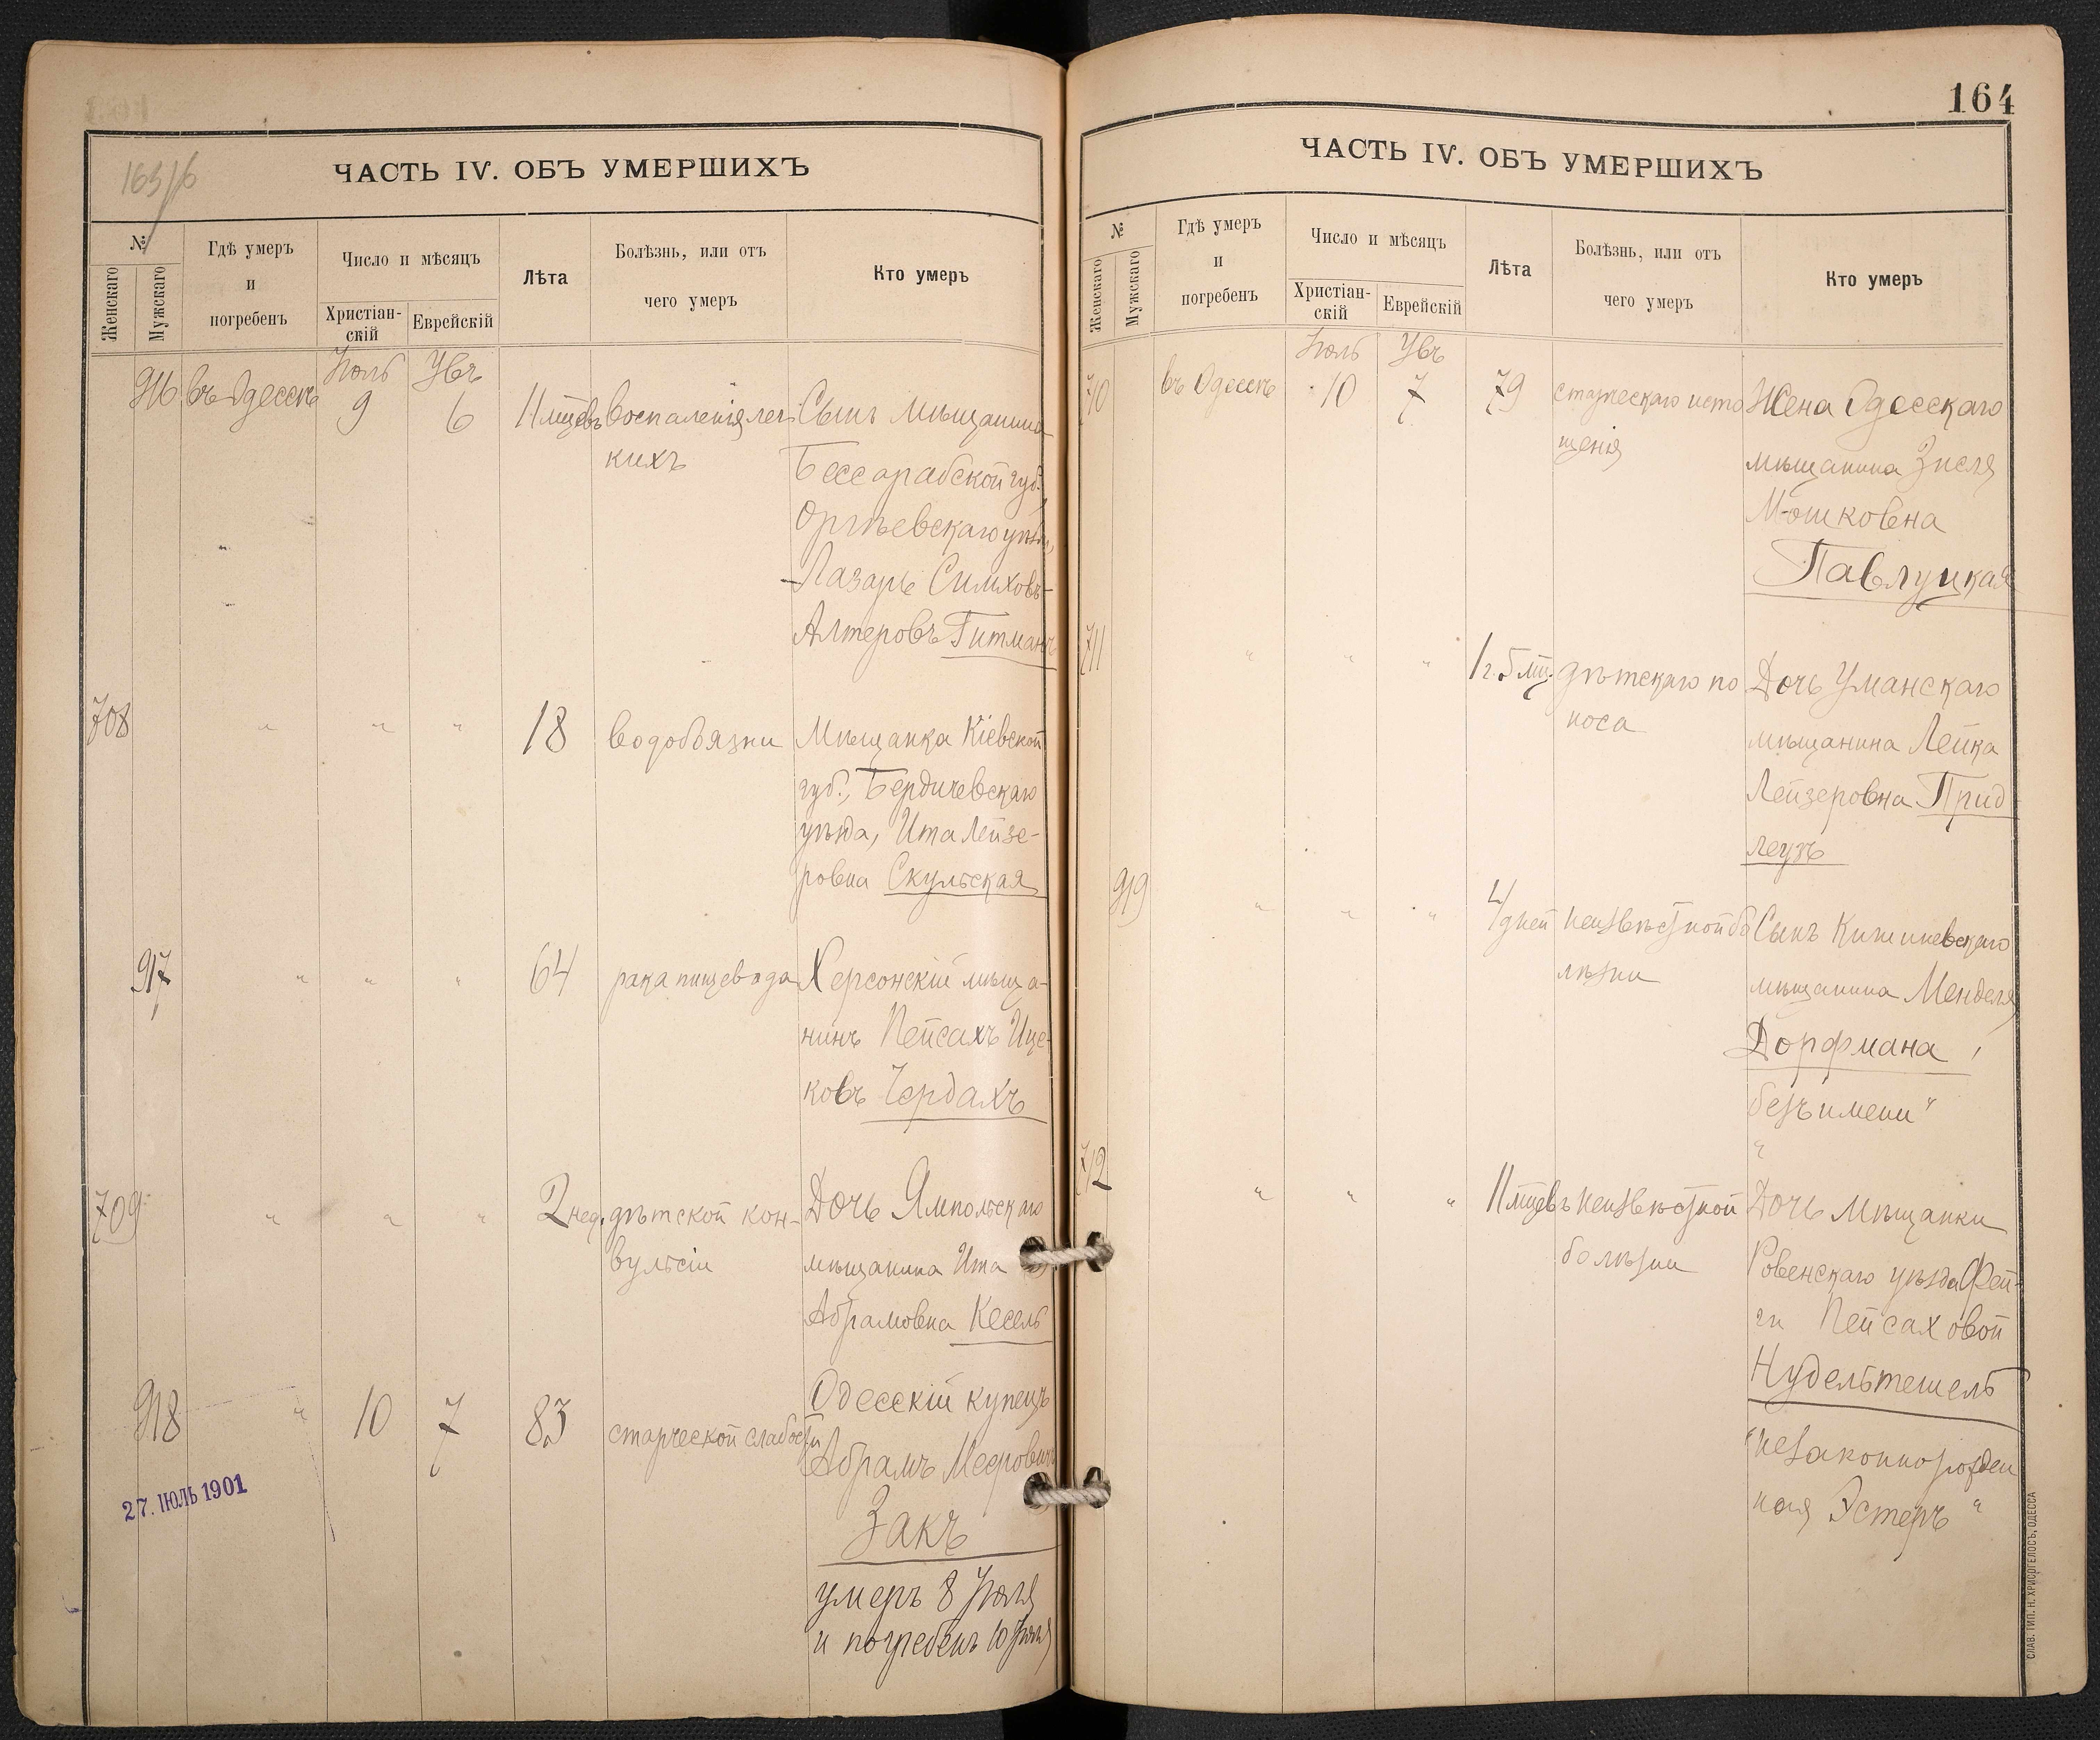 163/б
ЧАСТЬ IV. ОБЪ УМЕРШИХЪ
№
Женскаго
Мужскаго
Гдѣ умеръ
и
погребенъ
Число и мѣсяцъ
Христіан-
скій
Еврейскій
Лѣта
Болѣзнь, или отъ
чего умеръ
Кто умеръ
Іюль Увъ
916 въ Одессѣ 9 6 11 мцевъ воспаленія лег- Сынъ мѣщанина
кихъ
Бессарабской губ.,
Оргѣевскаго уѣзда,
Лазарь Симховъ-
Алтеровъ Гитманъ
708 " " " 18 водобоязни Мѣщанка Кіевской
губ., Бердичевскаго
уѣзда, Ита Лейзе-
ровна Скульская
917 " " " 64 рака пищевода Херсонскій мѣща-
нинъ Пейсахъ Ице-
ковъ Чердахъ
709 " " " 2 нед. дѣтской кон- Дочь Ямпольскаго
вульсіи мѣщанина Ита
Абрамовна Кесель
918 " 10 7 83 старческой слабости Одесскій купецъ
Абрамъ Мееровичъ
Закъ
умеръ 8 Іюля
и погребенъ 10 Іюля
27. ІЮЛЬ 1901
164
ЧАСТЬ IV. ОБЪ УМЕРШИХЪ
№
Женскаго
Мужскаго
Гдѣ умеръ
и
погребенъ
Число и мѣсяцъ
Христіан-
скій
Еврейскій
Лѣта
Болѣзнь, или отъ
чего умеръ
Кто умеръ
Іюль Увъ
710 въ Одессѣ 10 7 79 старческаго исто Жена Одесскаго
щенія мѣщанина Зисля
Мошковна
Павлуцкая
711 " " " 1 г. 5 мц. дѣтскаго по Дочь Уманскаго
носа мѣщанина Лейка
Лейзеровна Прид
леузъ
919 " " " 4 дней неизвѣстной бо Сынъ Кишиневскаго
лѣзни мѣщанина Менделя
Дорфмана
безъ имени "
712 " " " 11 мцевъ неизвѣстной Дочь мѣщанки
болѣзни Ровенскаго уѣзда Фей-
ги Пейсаховой
Нудельтешель
"незаконнорожден
ная Эстеръ "
СЛАВ. ТИП. Н. ХРИСОГЕЛОСЪ, ОДЕССА